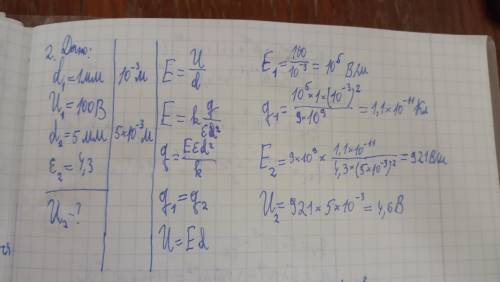 2. Дано:
d₁=1мм
U₁=100В
d₂=5мм
ε₂=4,3
U₂-?
10⁻³м
5×10⁻³м
E=U/d
E=k q/εd²
q=Eεd²/k
q₁=q₂
U=Ed
E₁=100/10⁻³=10⁵ В/м
q₁=10⁵×1×(10⁻³)²/9×10⁹=1,1×10⁻¹¹Кл
E₂=9×10⁹×1,1×10⁻¹¹/4,3×(5×10⁻³)²=921В/м
U₂=921×5×10⁻³=4,6В